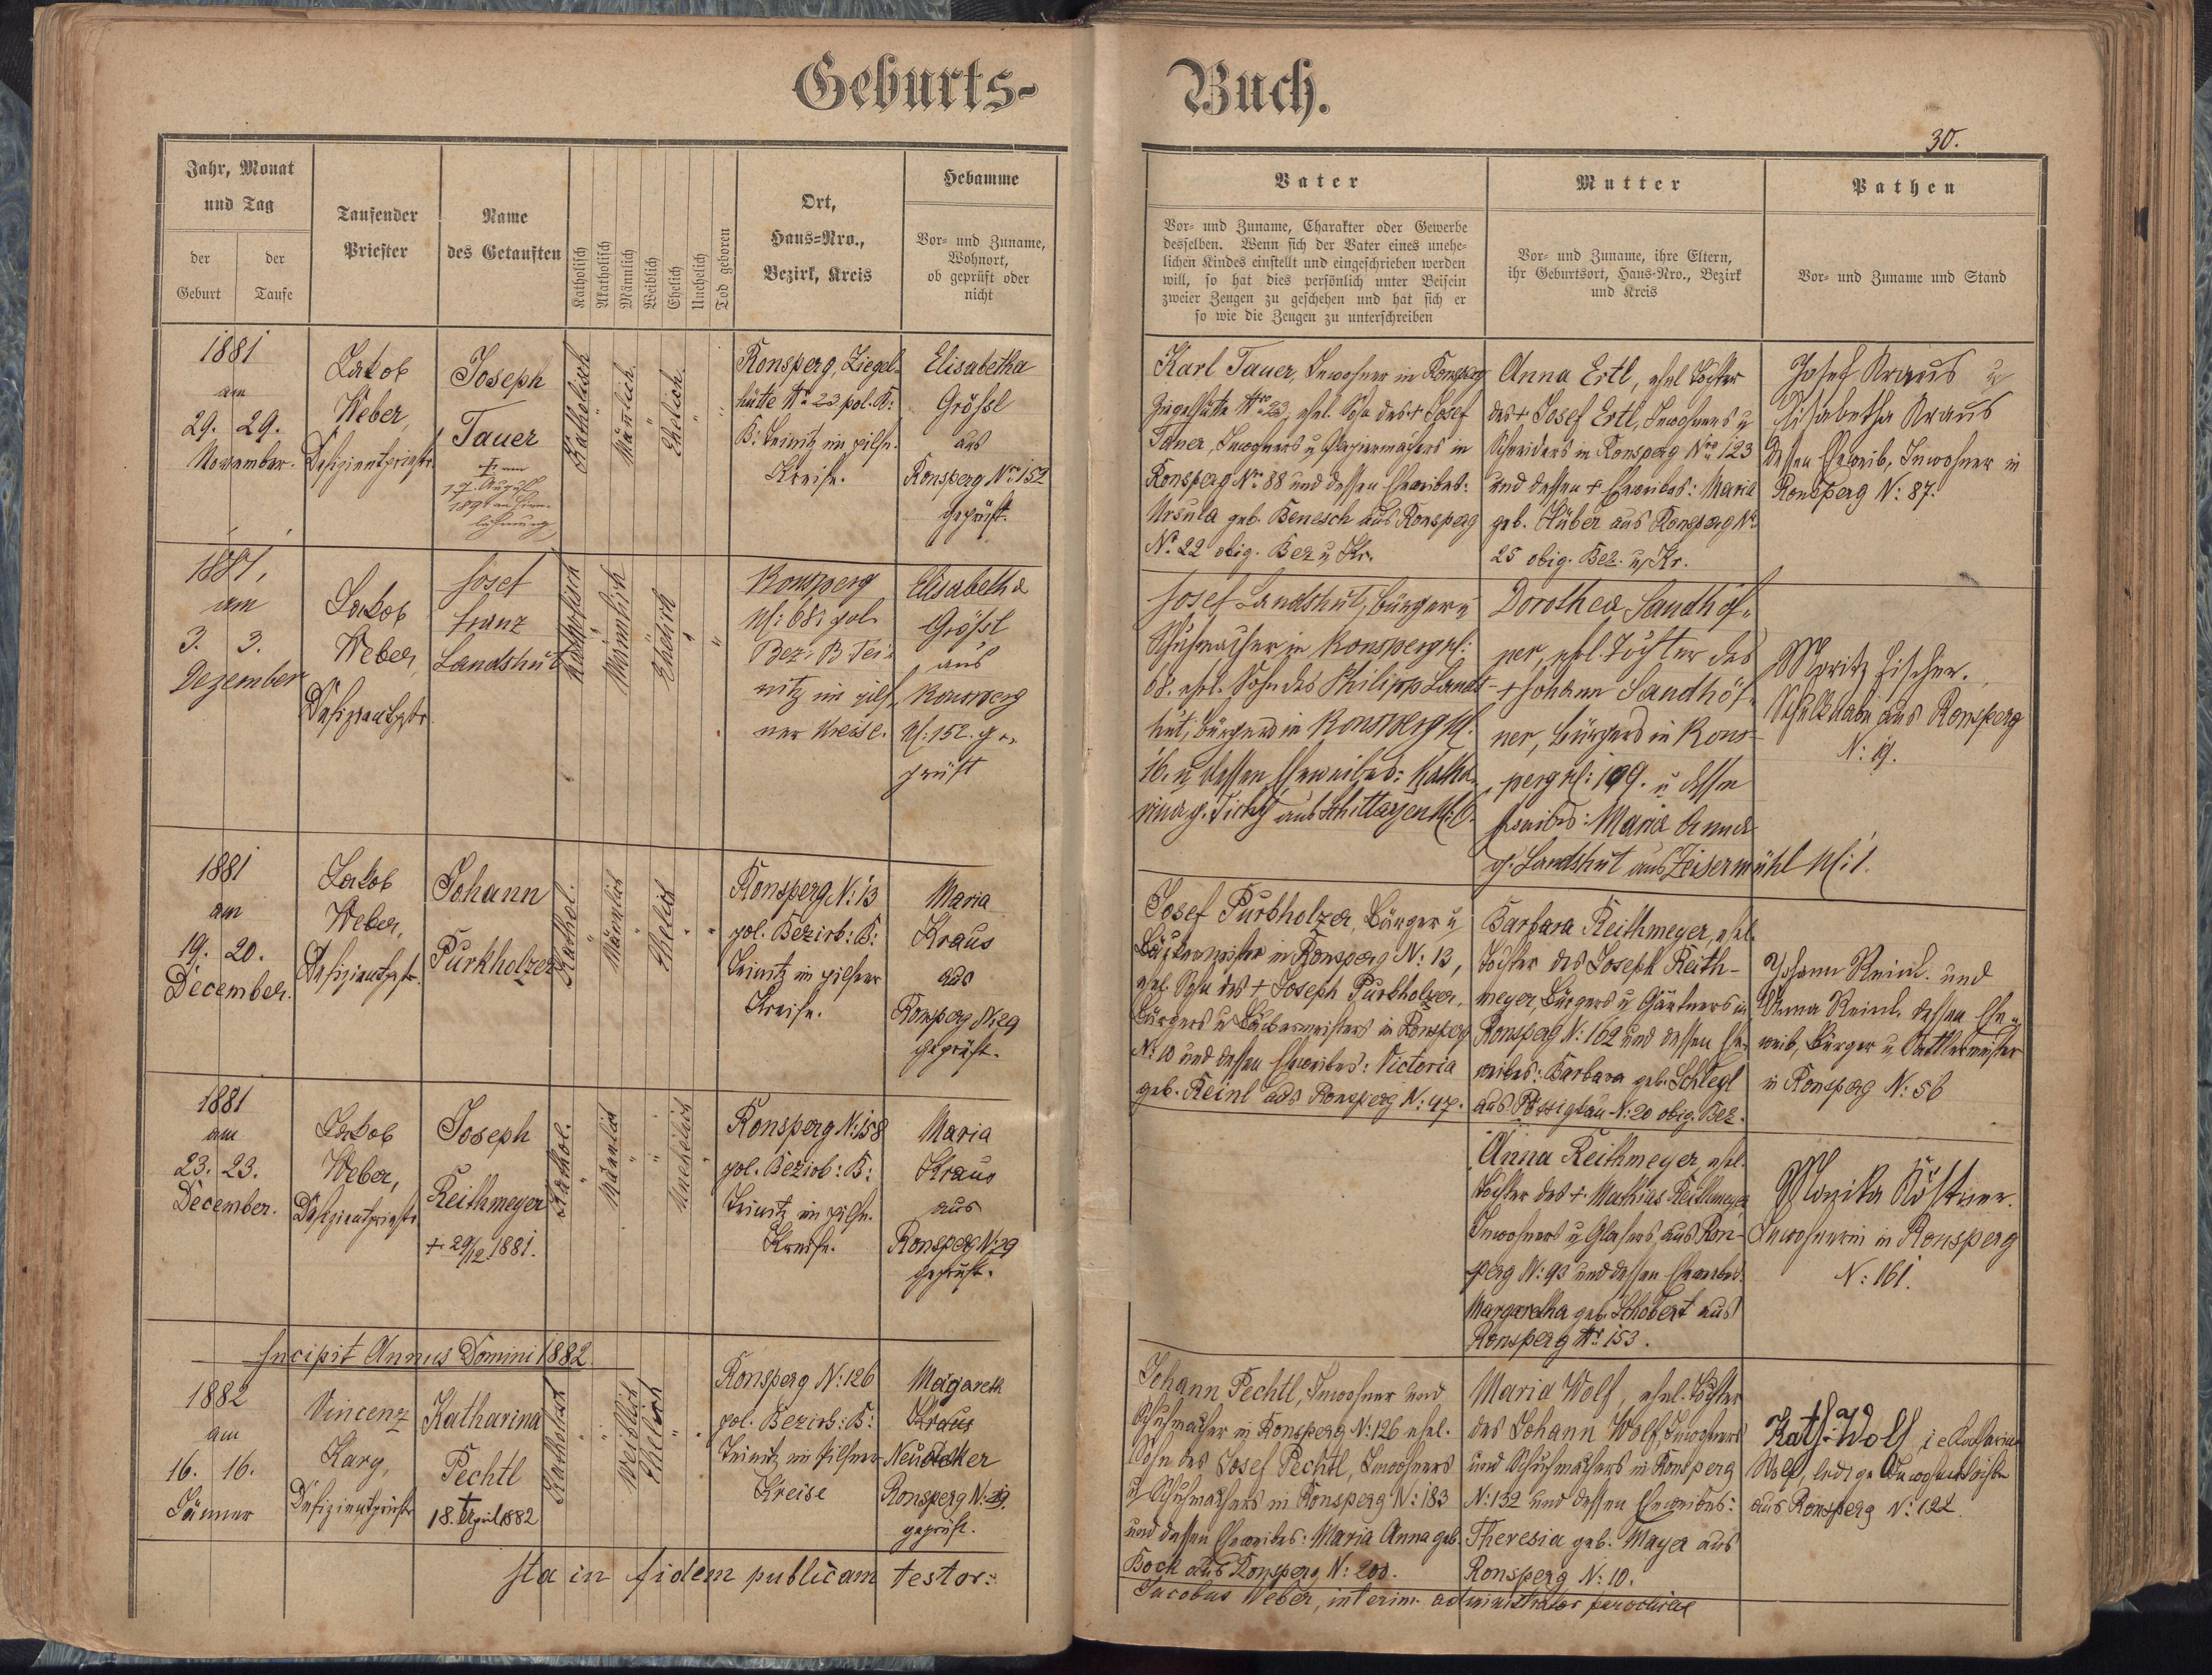 Geburts-
Buch.
30.
Jahr, Monat
und Tag
der
Geburt
der
Taufe
Taufender
Priester
Name
des Getauften
Katholisch
Akatholisch
Männlich
Weiblich
Ehelich
Unehelich
Tod geboren
Ort,
Haus-Nro.,
Bezirk, Kreis
Hebamme
Vor- und Zuname,
Wohnort,
ob geprüft oder
nicht
Vater
Vor- und Zuname, Charakter oder Gewerbe
desselben. Wenn sich der Vater eines unehe-
lichen Kindes einstellt und eingeschrieben werden
will, so hat dies persönlich unter Beisein
zweier Zeugen zu geschehen und hat sich er
so wie die Zeugen zu unterschreiben
Mutter
Vor- und Zuname, ihre Eltern,
ihr Geburtsort, Haus-Nro., Bezirk
und Kreis
Pathen
Vor- und Zuname und Stand
1881
am
29. 29.
November.
Jakob
Weber,
Defizientpriestr.
Joseph
Tauer
† am
Katholisch
Männlich.
Ehelich.
Ronsperg, Ziegel-
hütte Nro 23 pol. B:
B: Teinitz im pilsn.
Kreise.
Elisabetha
Größl
aus
Ronsperg Nro 152
geprüft.
Karl Tauer, Inwohner in Ronsperg
Ziegelhütte Nro 23, ehel. Sohn des † Josef
Tauer, Inwohners u. in
Ronsperg Nro 88 und dessen Eheweibes:
Ursula geb. Benesch aus Ronsperg
No 22 obig. Bez u Kr.
Anna Ertl, ehel Tochter
des † Josef Ertl, Inwohners u
Schneiders in Ronsperg Nro 123
und dessen † Eheweibes: Maria
geb. Hüber aus Ronsperg No
25 obig. Bez. u. Kr.
Josef Kraus u
Elisabetha Kraus
dessen Eheweib, Inwohner in
Ronsperg N: 87.
1881,
am
3. 3.
Dezember
Jakob
Weber,
Defizientpstr.
Josef
Franz
Landshut
Katholisch
Männlich
Ehelich
Ronsperg
N: 68: pol.
Bez: B. Tei-
nitz im pils-
ner Kreise.
Elisabetha
Größl
aus
Ronsperg
N: 152. ge-
prüft
Josef Landshut, Bürger u
Schuhmacher in Ronsperg N:
68. ehel. Sohn des Philipp Lands-
hut, Bürgers in Ronsperg N:
16. u dessen Eheweibes: Katha-
rina g. aus Schittarzen N: 6.
Dorothea Sandhöf-
ner, ehl. Tochter des
† Johann Sandhöf-
ner, Bürgers in Rons-
perg N: 109. u dessen
Eheweibes: Maria Anna
g. Landshut aus Zeisermühl N: 1.
Moritz Fischer.
Schulknabe aus Ronsperg
N: 19.
1881
am
19. 20.
December.
Jakob
Weber,
Defizientpstr.
Johann
Purkholzer
Kathol.
Männlich
Ehelich
Ronsperg N: 13
pol. Bezirk: B:
Teinitz im pilsner
Kreise.
Maria
Kraus
aus
Ronsperg N: 29
geprüft.
Josef Purkholzer, Bürger u
Bäckermeister in Ronsperg N: 13,
ehel. Sohn des † Joseph Purkholzer,
Bürgers u Bäckermeisters in Ronsperg
N: 10 und dessen Eheweibes: Victoria
geb. Reinl aus Ronsperg N: 47.
Barbara Reithmeyer, ehel.
Tochter des Joseph Reith-
meyer, Bürgers u Gärtners in
Ronsperg N: 162 und dessen Ehe-
weibes: Barbara geb. Schlegl
aus Possigkau N: 20 obig. Bez.
Johann Reinl. und
Anna Reinl, dessen Ehe-
weib, Bürger u Sattlermeister
in Ronsperg N: 56
1881
am
23. 23.
December.
Jakob
Weber,
Defizientpriestr
Joseph
Reithmeyer
† 29/12 1881.
Kathol.
Männlich
Unehelich
Ronsperg N: 158
pol. Bezirk: B:
Teinitz im pilsn.
Kreise.
Maria
Kraus
aus
Ronsperg N: 29
geprüft.
Anna Reithmeyer, ehel.
Tochter des † Mathias Reithmeyer
Inwohners u Glasers, aus Ron-
sperg N: 93 und dessen Eheweibes:
Margaretha geb. Schobert aus
Ronsperg Nr. 153.
Monika Köstner.
Inwohnerin in Ronsperg
N: 161.
Incipit Annus Domini 1882
1882
am
16. 16.
Jänner
Vincenz
Karg,
Defizientpriestr
Katharina
Pechtl
18. † April 1882
Katholisch
Weiblich
Ehelich
Ronsperg N: 126
pol. Bezirk: B:
Teinitz im Pilsner
Kreise
Magareth
Kraus
Ronsperg N: 29.
geprüft.
Johann Pechtl, Inwohner und
Schuhmacher in Ronsperg N: 126 ehel.
Sohn des Josef Pechtl, Inwohners
u Schuhmachers in Ronsperg N: 183
und dessen Eheweibes: Maria Anna geb.
Bock aus Ronsperg N: 200.
Maria Wolf, ehel. Tochter
des Johann Wolf, Inwohners
und Schuhmachers in Ronsperg
N: 132 und dessen Eheweibes:
Theresia geb. Mayer aus
Ronsperg N: 10.
Kath: Wolf i e Katharina
Wolf, ledige Inwohnerstochter
aus Ronsperg N: 122.
Ita in fidem publicam testor:
Jacobus Weber, interim. administrator parochiae